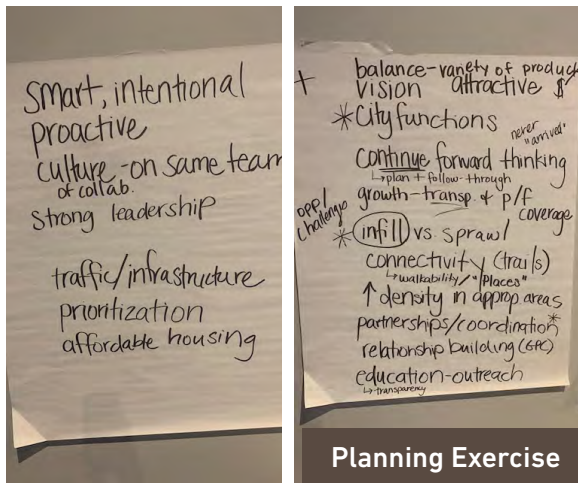 smart, intentional
proactive
culture-on same team
of collab.
strong leadership
traffic/infrastructure
prioritization
affordable housing
+ balance-variety of product
vision attractive $
*City functions
never "arrived"
continue forward thinking
↳plan + follow-through
growth-transp. & p/f coverage
opp/
challenges
* infill vs. sprawl
connectivity (trails)
↳walkability/"Places"
↑ density in approp areas
partnerships/coordination*
relationship building (GPC)
education-outreach
↳transparency
Planning Exercise